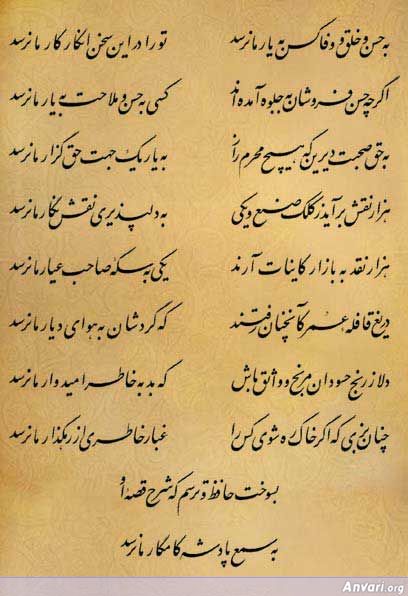 به حسن و خلق و وفا کس به یار ما نرسد تو را در این سخن انکار کار ما نرسد
اگر چه حسن فروشان به جلوه آمده‌اند کسی به حسن و ملاحت به یار ما نرسد
به حق صحبت دیرین که هیچ محرم راز به یار یک جهت حق گزار ما نرسد
هزار نقش برآید ز کلک صنع و یکی به دلپذیری نقش نگار ما نرسد
هزار نقد به بازار کاینات آرند یکی به سکهٔ صاحب عیار ما نرسد
دریغ قافله عمر کآنچنان رفتند که گردشان به هوای دیار ما نرسد
دلا ز رنج حسودان مرنج و واثق باش که بد به خاطر امیدوار ما نرسد
چنان بزی که اگر خاک ره شوی کس را غبار خاطری از رهگذار ما نرسد
بسوخت حافظ و ترسم که شرح قصه او
به سمع پادشه کامکار ما نرسد
Anvari.org